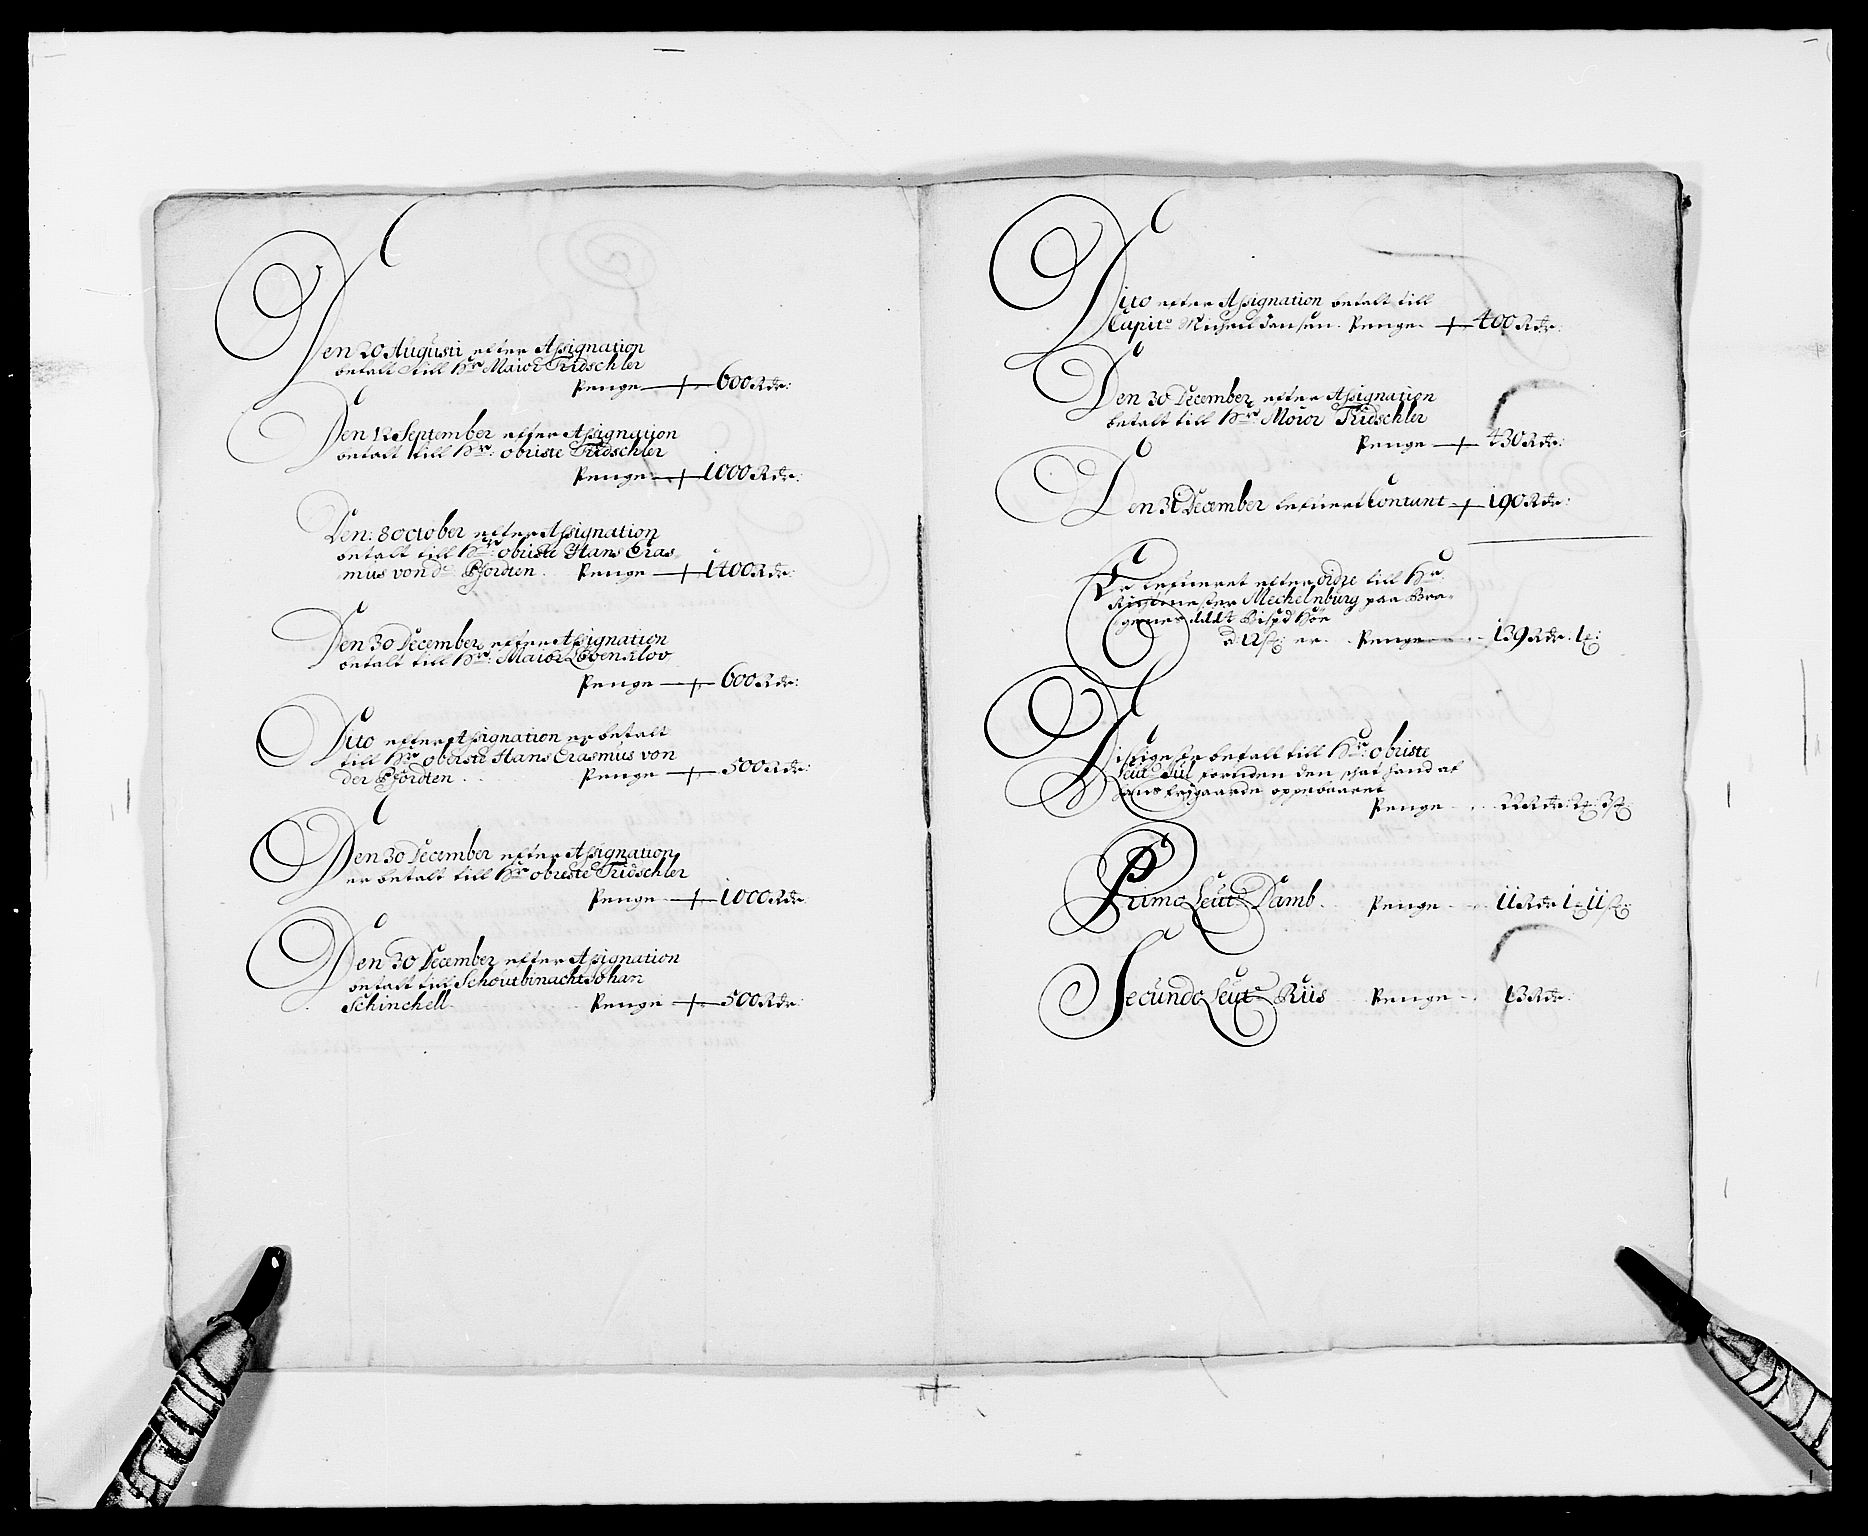 Den 20 Augusti efter Assignation
betalt till Hr: Maior Tridschler
Penge 600 Rdr:
Den 12 September efter Assignation
betalt till Hr: obriste Tridschler
Penge 1000 Rdr:
Den: 8 october efter Assignation
betalt till Hr: obriste Hans Eras
mus von dr Pfordten. Penge 1400 Rdr:
Den 30 December efter Assignation
betalt till Hr: Maior
Penge 600 Rdr:
Dito efter Assignation er betalt
till Hr: obriste Hans Erasmus von
der Pfordten Penge 500 Rdr:
Den 30 December efter Assignation
er betalt till Hr obriste Tridschler
Penge 1000 Rdr:
Den 30 December efter Assignation
betalt till Schoutbinacht Johan
Schinchell Penge 500 Rdr:
Dito efter Assignation betalt till
Capit: Jansen. Penge 400 Rdr:
Den 30 December efter Assignation
betalt till Hr: Moior Tridschler
Penge 430 Rdr:
Den 31 December lefuert Contant 190 Rdr:
Er lefueret efter ordre till Hr:
Ritmester Mechelnburg paa Bra-
Høe
er Penge 139 Rdr. 1
betalt till Hr: obriste
Leut: foruden den
Penge 22 Rdr
Primo Leut: Damb. Penge 11 Rdr 1 11
Secundo Leut: Riis Penge 13 Rdr: